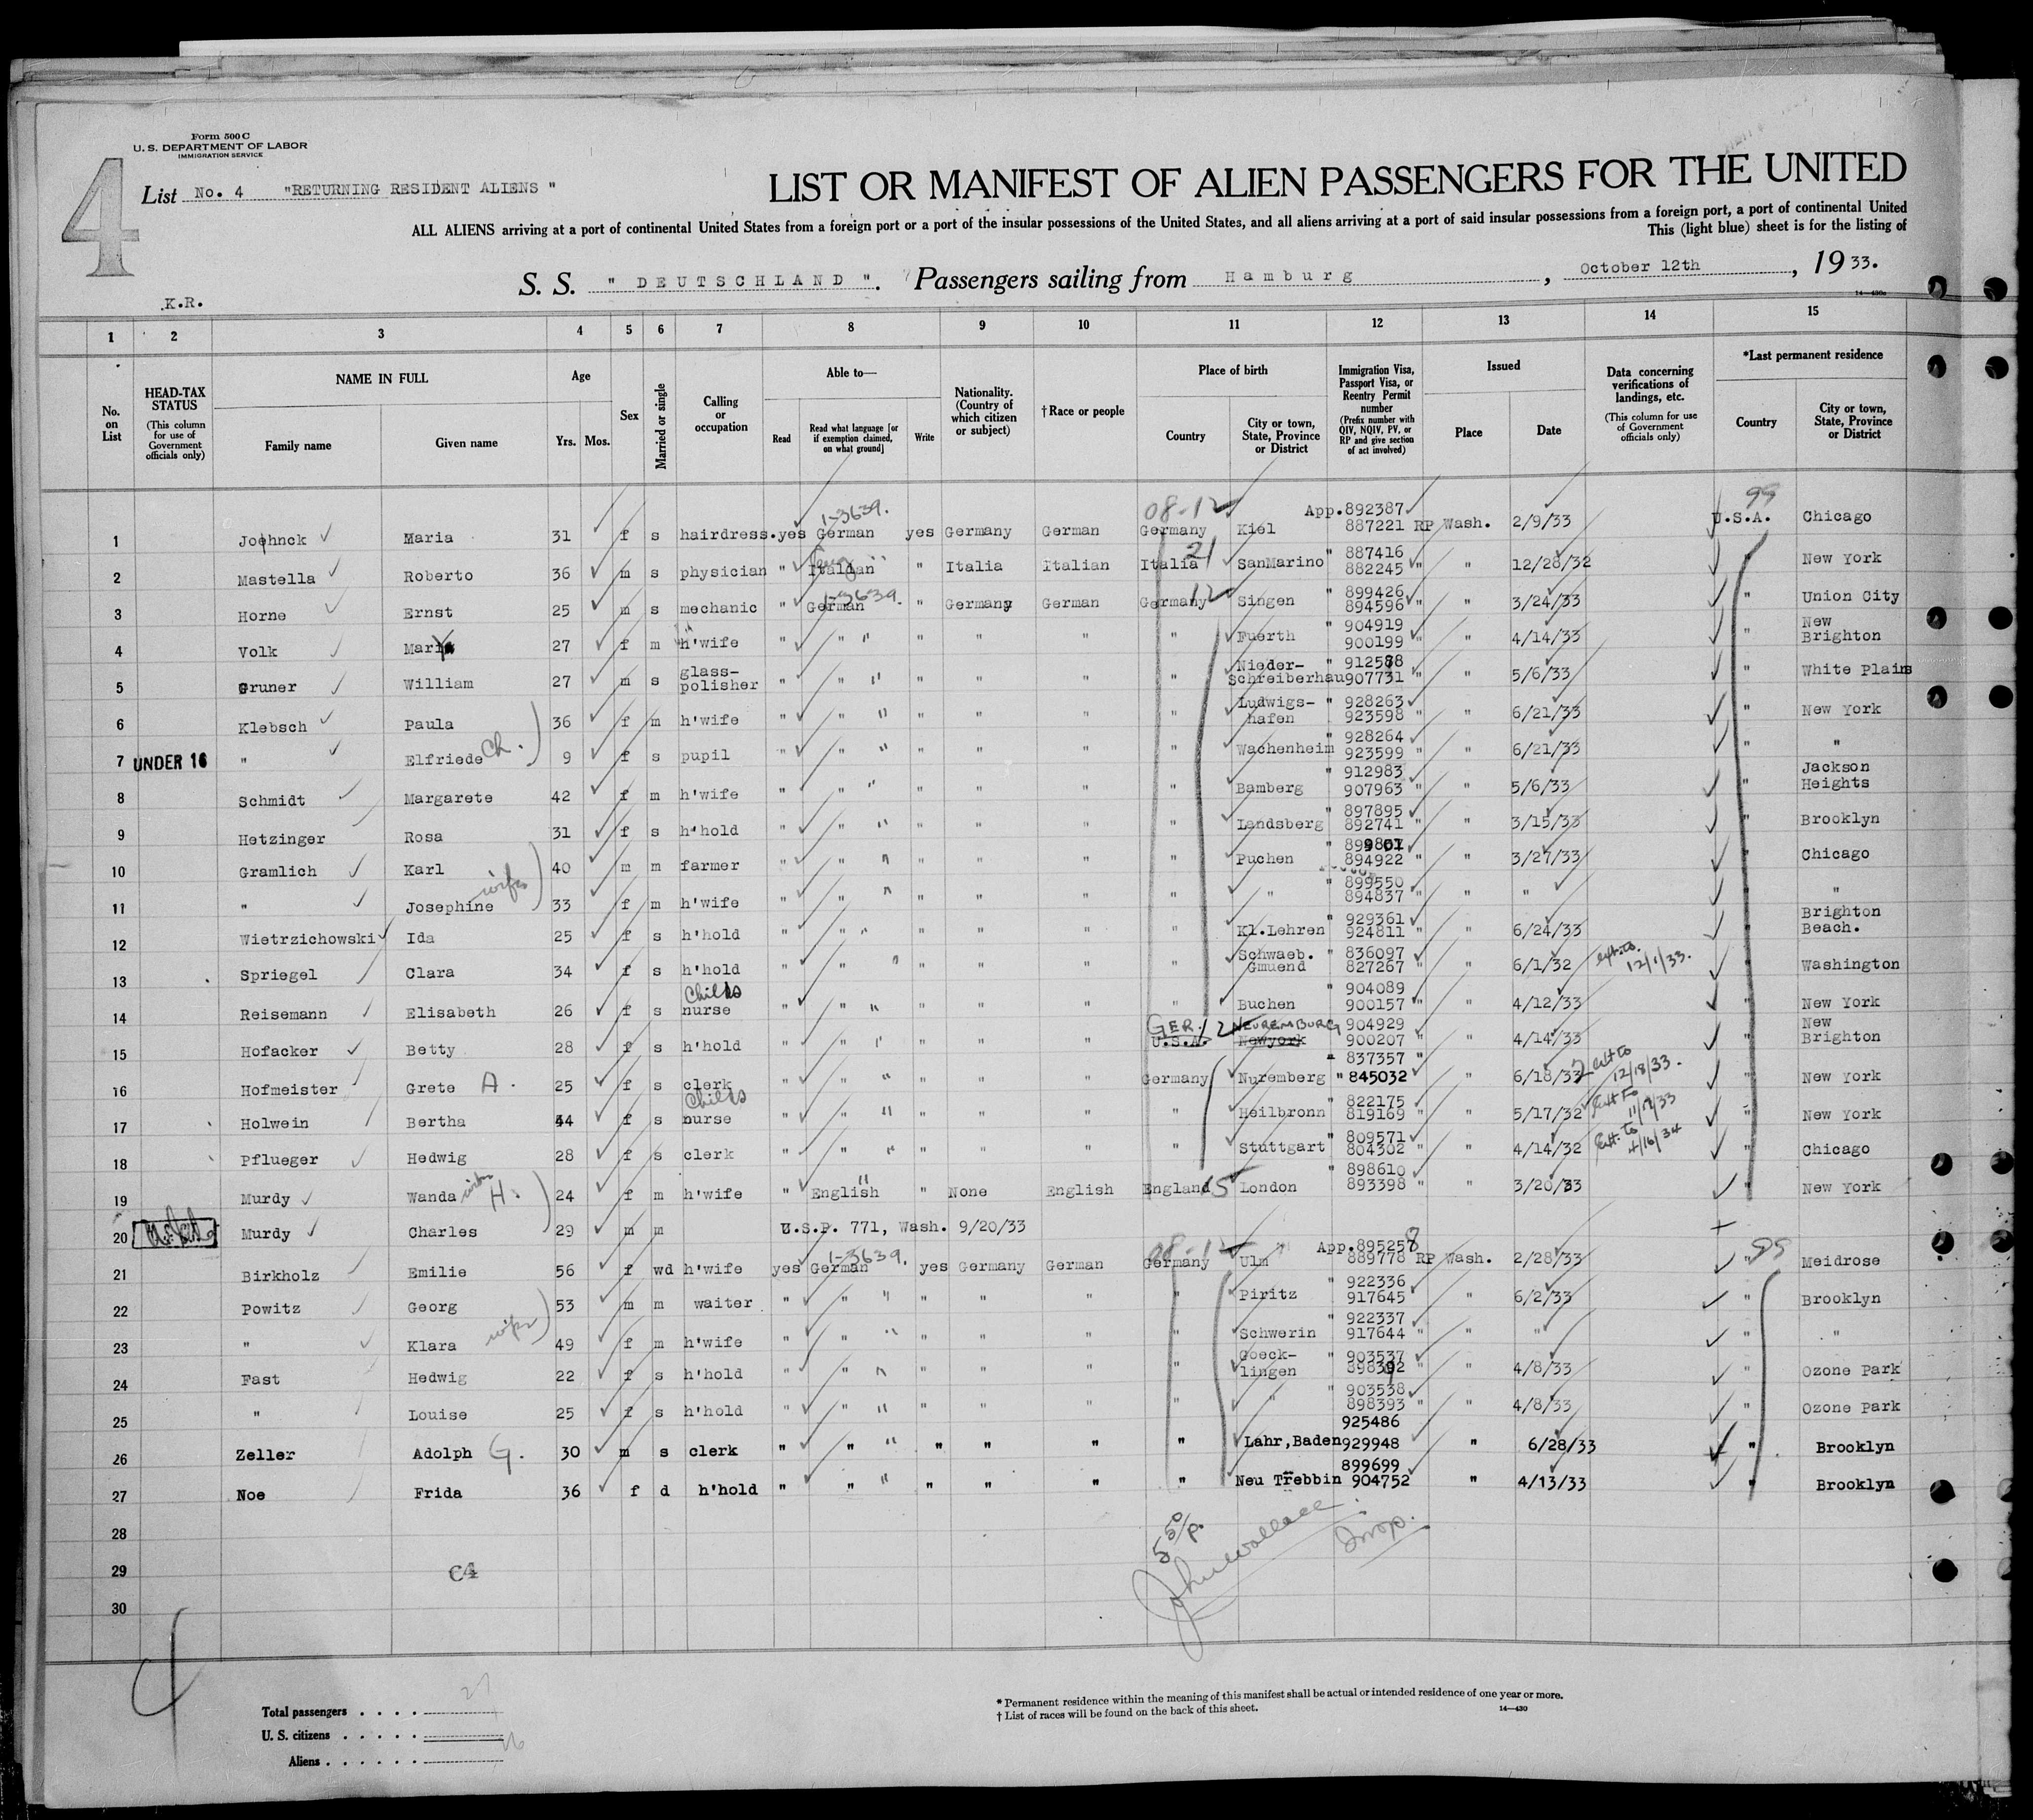 Form 500 C
U. S. DEPARTMENT OF LABOR
IMMIGRATION SERVICE
4
List No. 4 "RETURNING RESIDENT ALIENS "
LIST OR MANIFEST OF ALIEN PASSENGERS FOR THE UNITED
ALL ALIENS arriving at a port of continental United States from a foreign port or a port of the insular possessions of the United States, and all aliens arriving at a port of said insular possessions from a foreign port, a port of continental United
This (light blue) sheet is for the listing of
S. S. " DEUTSCHLAND ". Passengers sailing from Hamburg , October 12th , 19 33.
K.R.
1 2 3 4 5 6 7 8 9 10 11 12 13 14 15
No. on List
HEAD-TAX STATUS (This column for use of Government officials only)
NAME IN FULL Family name Given name
Age Yrs. Mos.
Sex
Married or single
Calling or occupation
Able to— Read Read what language [or if exemption claimed, on what ground] Write
Nationality. (Country of which citizen or subject)
†Race or people
Place of birth Country City or town, State, Province or District
Immigration Visa, Passport Visa, or Reentry Permit number (Prefix number with QIV, NQIV, PV, or RP and give section of act involved)
Issued Place Date
Data concerning verifications of landings, etc. (This column for use of Government officials only)
*Last permanent residence Country City or town, State, Province or District
1-3639. 08-12 App.892387 99
1 Joehnck Maria 31 f s hairdress. yes German yes Germany German Germany Kiel 887221 RP Wash. 2/9/33 U.S.A. Chicago
21 " 887416
2 Mastella Roberto 36 m s physician " Italian " Italia Italian Italia SanMarino 882245 " " 12/28/32 " New York
1-3639. 12 " 899426
3 Horne Ernst 25 m s mechanic " German " Germany German Germany Singen 894596 " " 3/24/33 " Union City
" 904919 New
4 Volk Mary 27 f m h'wife " " " " " " " Fuerth 900199 " " 4/14/33 " Brighton
glass- Nieder- " 912588
5 Gruner William 27 m s polisher " " " " " " " Schreiberhau 907731 " " 5/6/33 " White Plains
Ludwigs- " 928263
6 Klebsch Paula 36 f m h'wife " " " " " " " hafen 923598 " " 6/21/33 " New York
" 928264
7 UNDER 16 " Elfriede Ch. 9 f s pupil " " " " " " " Wachenheim 923599 " " 6/21/33 " "
" 912983 Jackson
8 Schmidt Margarete 42 f m h'wife " " " " " " " Bamberg 907963 " " 5/6/33 " Heights
" 897895
9 Hetzinger Rosa 31 f s h'hold " " " " " " " Landsberg 892741 " " 3/15/33 " Brooklyn
10 Gramlich Karl 40 m m farmer " " " " " " " Puchen 894922 " " 3/27/33 " Chicago
" 899550
11 " Josephine wife 33 f m h'wife " " " " " " " " 894837 " " " " "
" 929361 Brighton
12 Wietrzichowski Ida 25 f s h'hold " " " " " " " Kl.Lehren 924811 " " 6/24/33 " Beach.
Schwaeb. " 836097 ext. to
13 Spriegel Clara 34 f s h'hold " " " " " " " Gmuend 827267 " " 6/1/32 12/1/33. " Washington
Childs " 904089
14 Reisemann Elisabeth 26 f s nurse " " " " " " " Buchen 900157 " " 4/12/33 " New York
GER. 12 NEUREMBURG 904929 New
15 Hofacker Betty 28 f s h'hold " " " " " " U.S.A. Newyork 900207 " 4/14/33 " Brighton
" 837357 " ext to
16 Hofmeister Grete A. 25 f s clerk " " " " " " Germany Nuremberg " 845032 " 6/18/33 12/18/33. " New York
Childs " 822175 Ext To
17 Holwein Bertha 44 f s nurse " " " " " " " Heilbronn 819169 " " 5/17/32 11/17/33 " New York
" 809571 Ext. to
18 Pflueger Hedwig 28 f s clerk " " " " " " " Stuttgart 804302 " " 4/14/32 4/16/34 " Chicago
" 898610
19 Murdy Wanda wife H. 24 f m h'wife " English " None English England 15 London 893398 " " 3/20/33 " New York
20 Murdy Charles 29 m m U.S.P. 771, Wash. 9/20/33
1-3639. 08-12 App.895257 8 99
21 Birkholz Emilie 56 f wd h'wife yes German yes Germany German Germany Ulm 889778 RP Wash. 2/28/33 " Meidrose
" 922336
22 Powitz Georg 53 m m waiter " " " " " " " Piritz 917645 " " 6/2/33 " Brooklyn
" 922337
23 " Klara wife 49 f m h'wife " " " " " " " Schwerin 917644 " " " " "
Goeck- " 903537
24 Fast Hedwig 22 f s h'hold " " " " " " " lingen 898392 " " 4/8/33 " Ozone Park
" 903538
25 " Louise 25 f s h'hold " " " " " " " " 898393 " " 4/8/33 " Ozone Park
925486
26 Zeller Adolph G. 30 m s clerk " " " " " " " Lahr,Baden 929948 " 6/28/33 " Brooklyn
899699
27 Noe Frida 36 f d h'hold " " " " " " " Neu Trebbin 904752 " 4/13/33 " Brooklyn
28
29 C4
30
5 50/p.
John Wallace
Insp.
Total passengers . . . . 27
U. S. citizens . . . . .
Aliens . . . . . . 26
* Permanent residence within the meaning of this manifest shall be actual or intended residence of one year or more.
† List of races will be found on the back of this sheet.
14—430